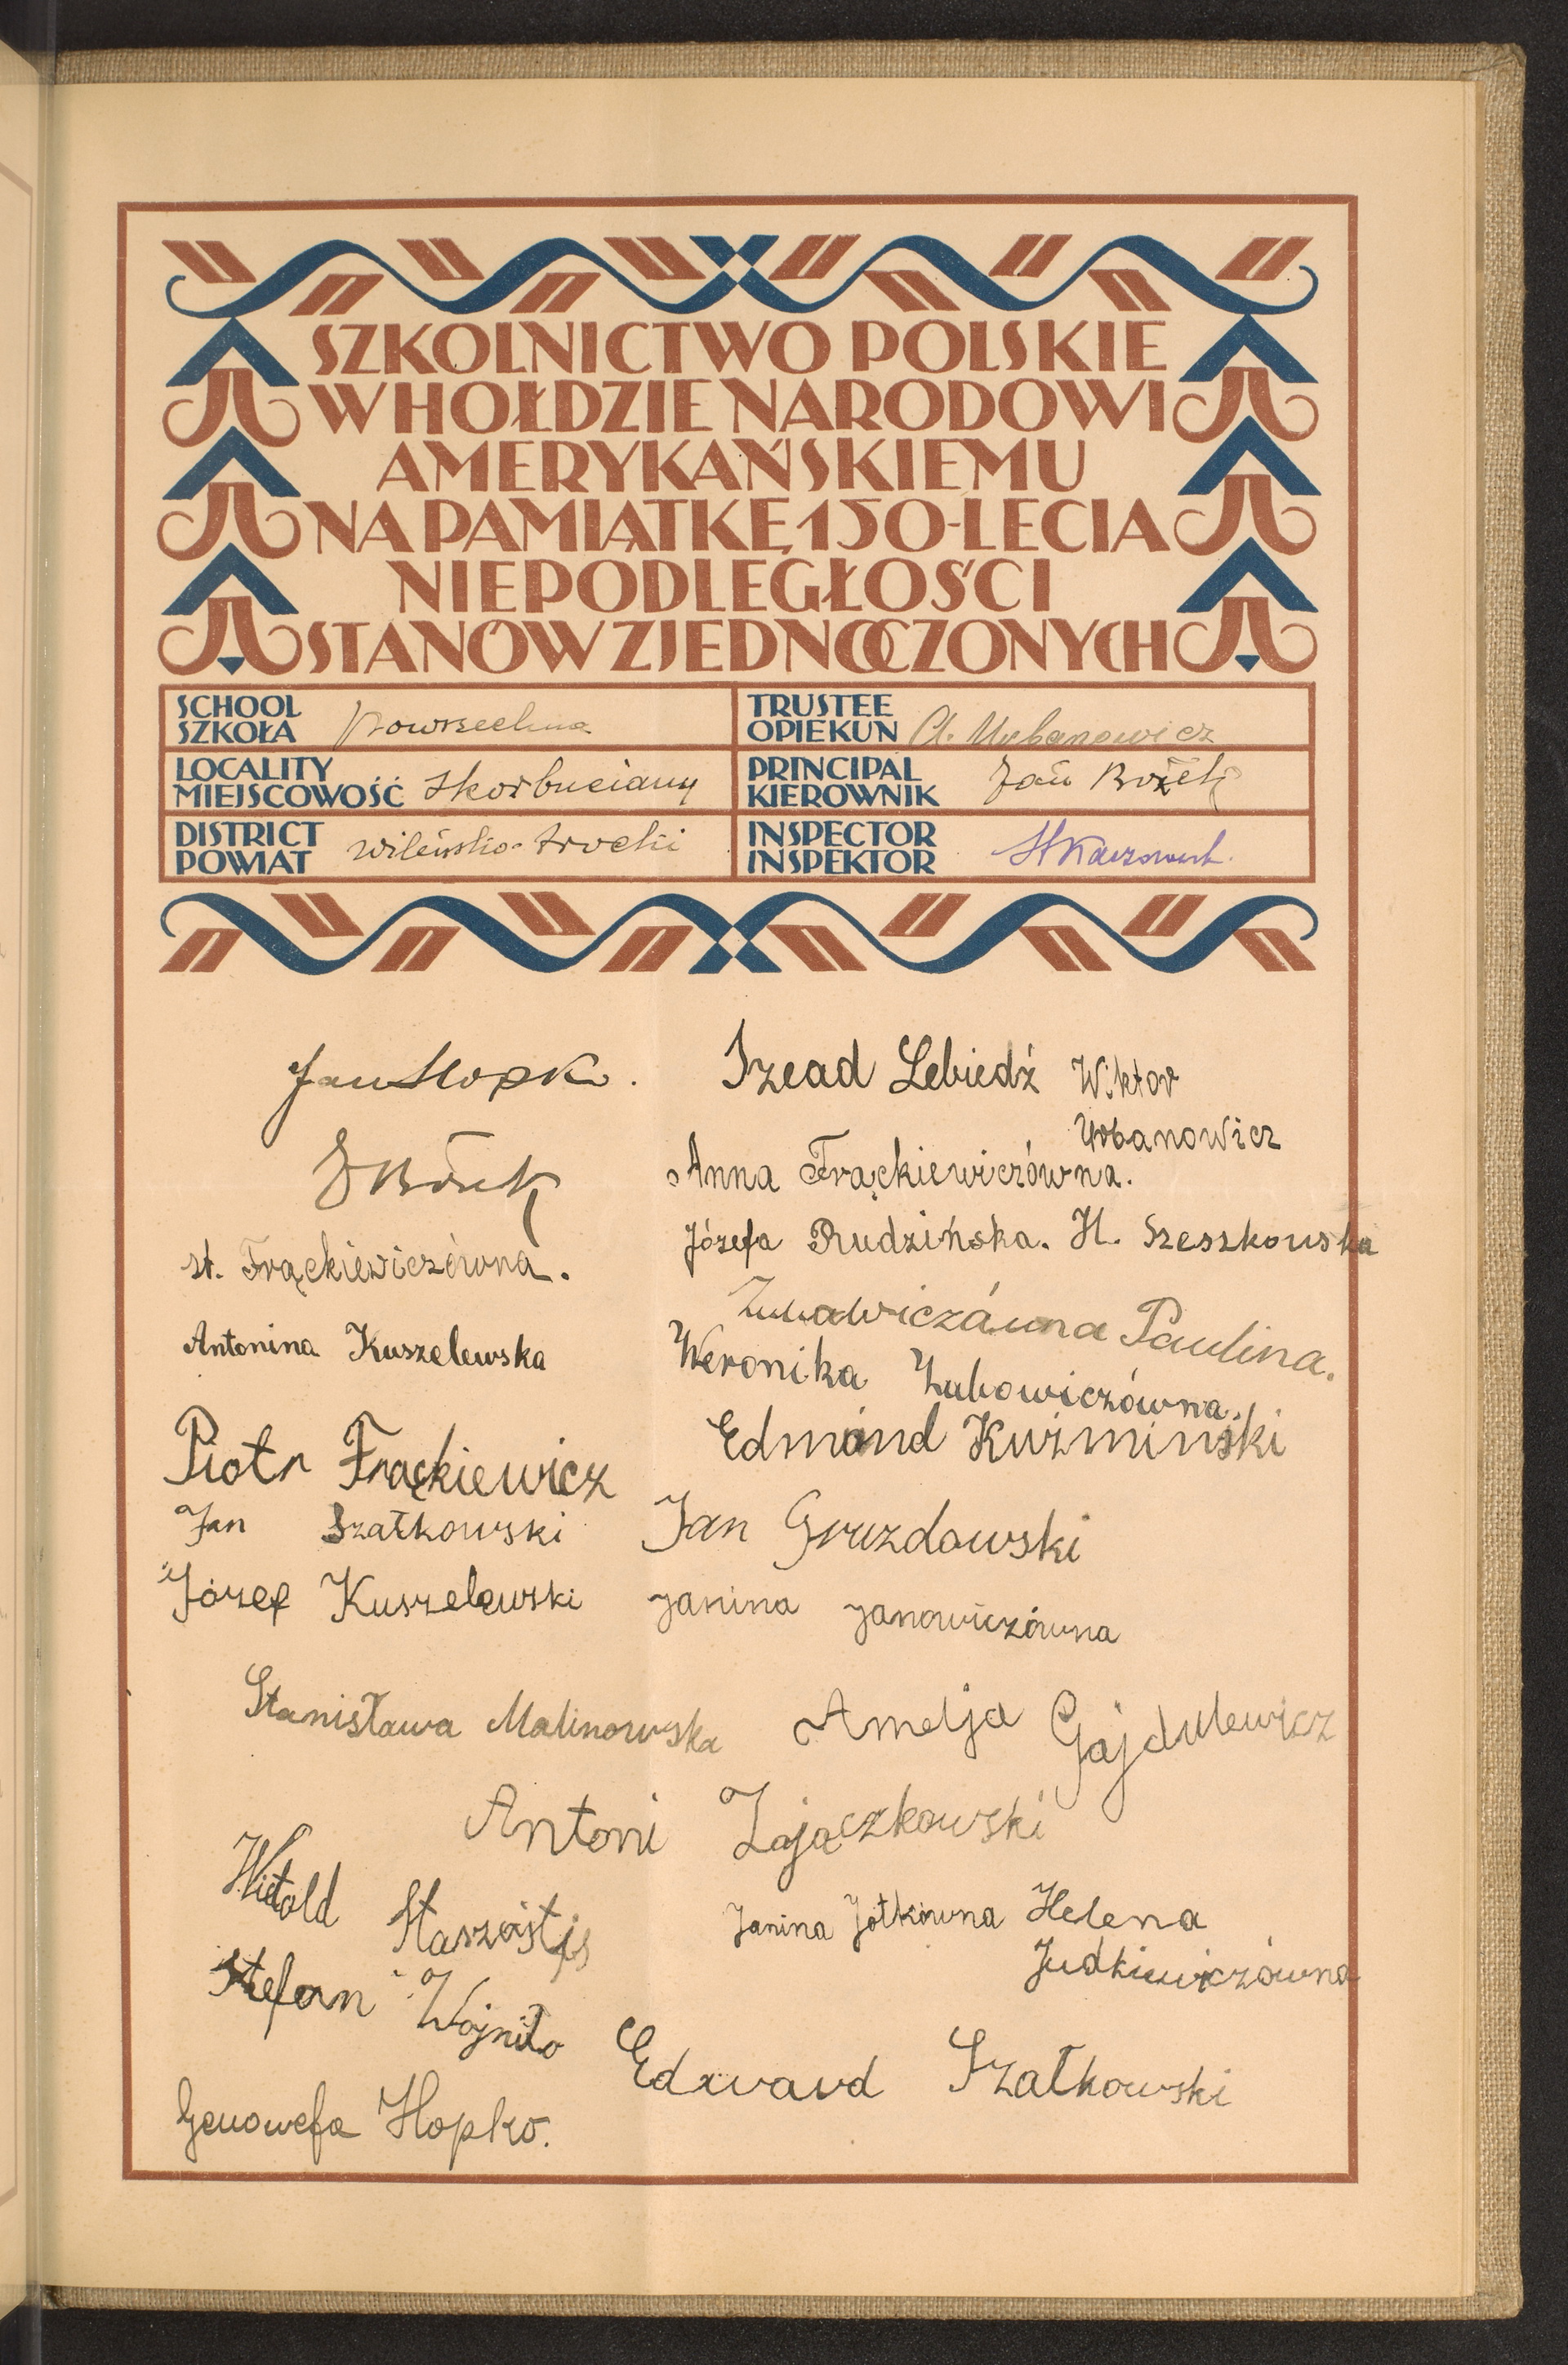 SZKOLNICTWO POLSKIE
W HOŁDZIE NARODOWI
AMERYKAŃSKIEMU
NA PAMIĄTKĘ 150-LECIA
NIEPODLEGŁOŚCI
STANÓW ZJEDNOCZONYCH
SCHOOL
SZKOŁA Powszechna
TRUSTEE
OPIEKUN A. Urbanowicz
LOCALITY
MIEJSCOWOŚĆ Skorbuciany
PRINCIPAL
KIEROWNIK Jan Bożek
DISTRICT
POWIAT Wileńsko-trocki
INSPECTOR
INSPEKTOR
Jan Hopko.
Izead Lebiedź
Wiktor
Urbanowicz
Anna Frąckiewiczówna.
st. Frąckiewiczówna.
Józefa Rudzińska. H. Szeszkowska
Antonina Kuszelewska
Paulina.
Weronika Zubowiczówna.
Piotr Frąckiewicz
Edmund Kuźmiński
Jan Szatkowski
Jan Gruzdowski
Józef Kuszelewski
Janina Janowiczówna
Stanisława Malinowska
Amelja Gajdulewicz
Antoni Zajączkowski
Witold
Janina Jotkówna
Helena
Judkiewiczówna
Stefan Wojniło
Edward Szatkowski
Genowefa Hopko.